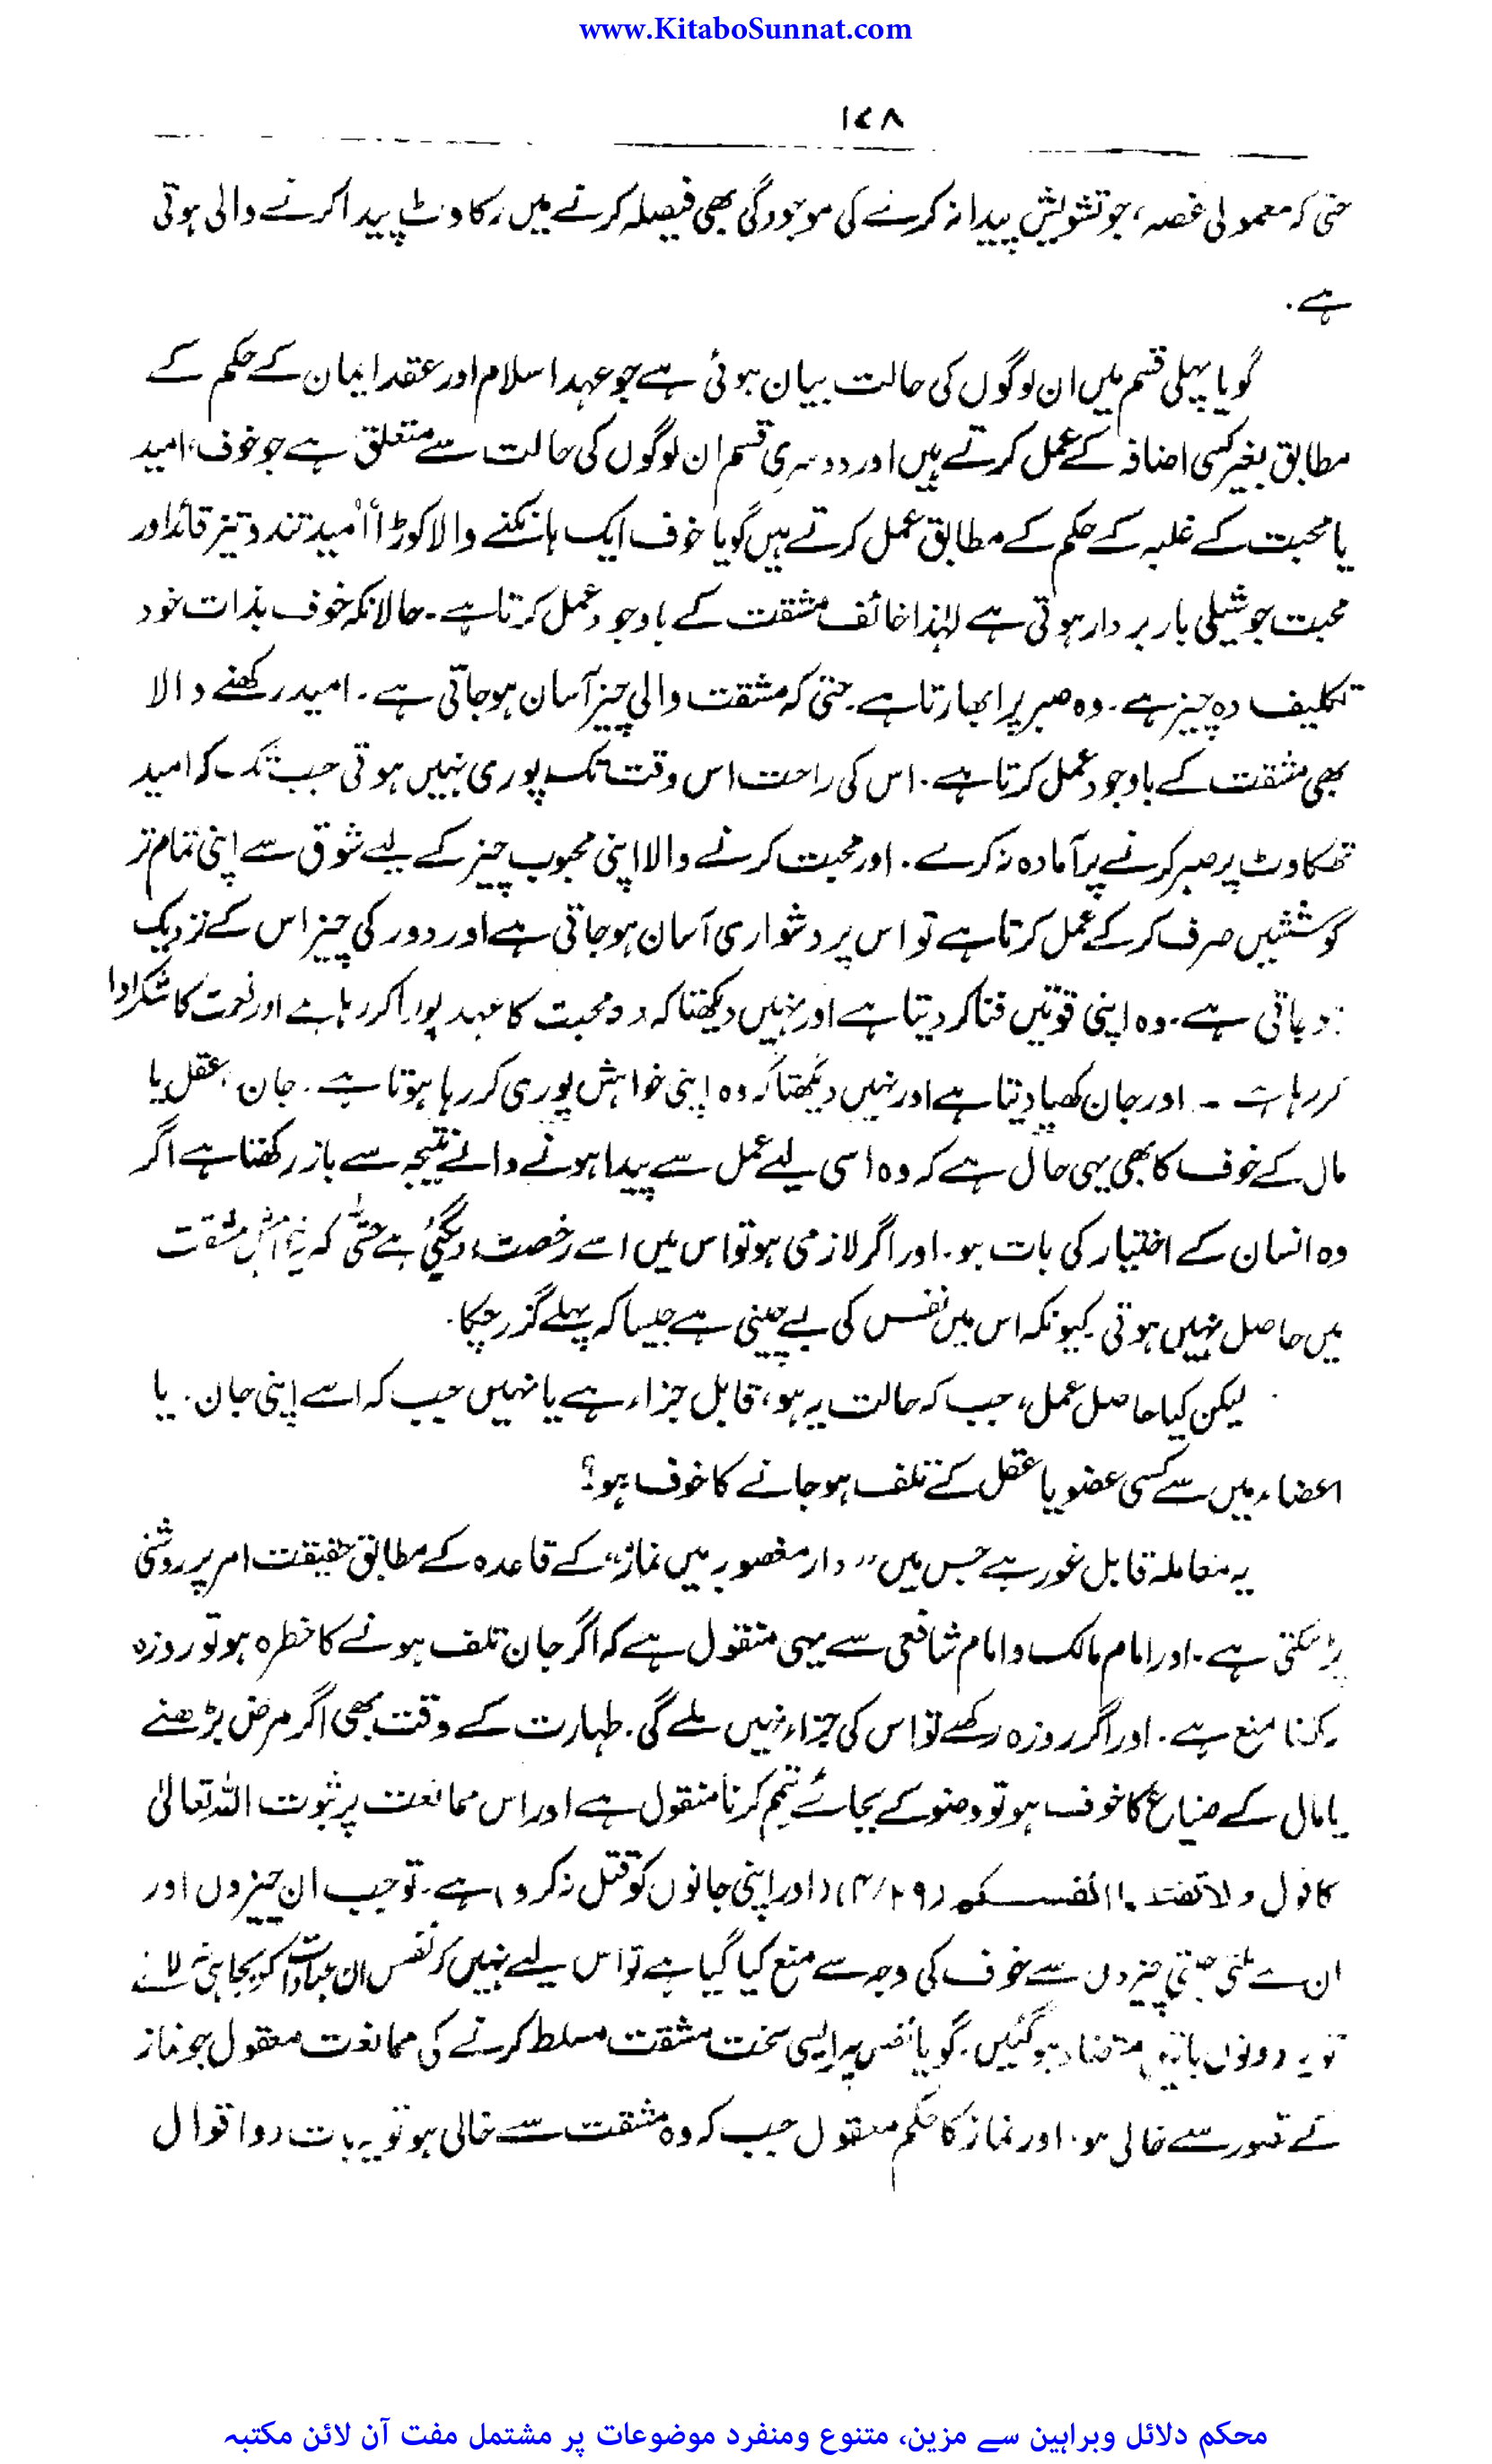 www.KitaboSunnat.com
۱۷۸
حتی کہ معمولی غصہ، جو تشویش پیدا نہ کرنے کی موجودگی بھی فیصلہ کرنے میں رکاوٹ پیدا کرنے والی ہوتی
ہے.
گویا پہلی قسم میں ان لوگوں کی حالت بیان ہوئی ہے جو عہد اسلام اور عقد ایمان کے حکم کے
مطابق بغیر کسی اضافہ کے عمل کرتے ہیں اور دوسری قسم ان لوگوں کی حالت سے متعلق ہے جو خوف، امید
یا محبت کے غلبہ کے حکم کے مطابق عمل کرتے ہیں گویا خوف ایک ہانکنے والا کوڑا اُمید تند و تیز قائد اور
محبت جوشیلی بار بردار ہوتی ہے لہٰذا خائف مشقت کے باوجود عمل کرتا ہے۔ حالانکہ خوف بذات خود
تکلیف دہ چیز ہے۔ وہ صبر پر ابھارتا ہے۔ حتیٰ کہ مشقت والی چیز آسان ہو جاتی ہے۔ امید رکھنے والا
بھی مشقت کے باوجود عمل کرتا ہے۔ اس کی راحت اس وقت تک پوری نہیں ہوتی جب تک کہ امید
تھکاوٹ پر صبر کرنے پر آمادہ نہ کرے۔ اور محبت کرنے والا اپنی محبوب چیز کے لیے شوق سے اپنی تمام تر
کوششیں صرف کر کے عمل کرتا ہے تو اس پر دشواری آسان ہو جاتی ہے اور دور کی چیز اس کے نزدیک
ہو جاتی ہے۔ وہ اپنی قوتیں فنا کر دیتا ہے اور نہیں دیکھتا کہ وہ محبت کا عہد پورا کر رہا ہے اور نعمت کا شکر ادا
کر رہا ہے ۔ اور جان کھپا دیتا ہے اور نہیں دیکھتا کہ وہ اپنی خواہش پوری کر رہا ہوتا ہے۔ جان، عقل یا
مال کے خوف کا بھی یہی حال ہے کہ وہ اسی لیے عمل سے پیدا ہونے والے نتیجہ سے باز رکھتا ہے اگر
وہ انسان کے اختیار کی بات ہو۔ اور اگر لازمی ہو تو اس میں اسے رخصت دی گئی ہے حتیٰ کہ مشقت
میں حاصل نہیں ہوتی کیونکہ اس میں نفس کی بے چینی ہے جیسا کہ پہلے گزر چکا۔
لیکن کیا حاصل عمل، جب کہ حالت یہ ہو، قابل جزاء ہے یا نہیں جب کہ اسے اپنی جان۔ یا
اعضاء میں سے کسی عضو یا عقل کے تلف ہو جانے کا خوف ہو؟
یہ معاملہ قابل غور ہے جس میں ”دار مغصوبہ میں نماز“ کے قاعدہ کے مطابق حقیقت امر پر روشنی
پڑ سکتی ہے۔ اور امام مالک و امام شافعی سے یہی منقول ہے کہ اگر جان تلف ہونے کا خطرہ ہو تو روزہ
رکھنا منع ہے۔ اور اگر روزہ رکھے تو اس کی جزاء نہیں ملے گی۔ طہارت کے وقت بھی اگر مرض بڑھنے
یا مال کے ضیاع کا خوف ہو تو وضو کے بجائے تیمم کرنا منقول ہے اور اس ممانعت پر ثبوت اللہ تعالیٰ
کا قول ولا تقتلوا انفسکم (۴/۲۹) (اور اپنی جانوں کو قتل نہ کرو) ہے۔ تو جب ان چیزوں اور
ان سے ملتی جلتی چیزوں سے خوف کی وجہ سے منع کیا گیا ہے تو اس لیے نہیں کہ نفس ان عبادات کو بجا نہ لائے
تو یہ دونوں باتیں متضاد ہو گئیں۔ گویا نفس پر ایسی سخت مشقت مسلط کرنے کی ممانعت معقول جو نماز
کے تصور سے خالی ہو۔ اور نماز کا حکم معقول جب کہ وہ مشقت سے خالی ہو تو یہ بات دو اقوال
محکم دلائل وبراہین سے مزین، متنوع ومنفرد موضوعات پر مشتمل مفت آن لائن مکتبہ